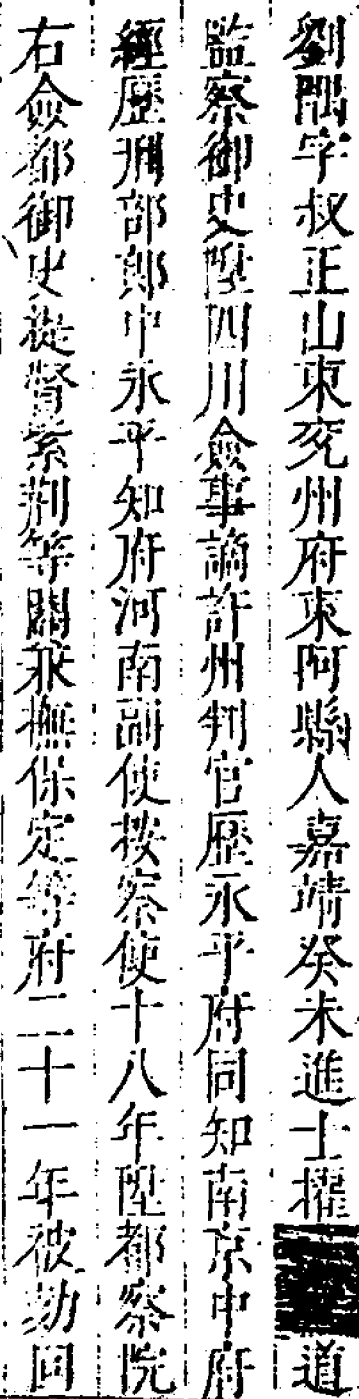 劉隅字叔正山東兖州府東阿縣人嘉靖癸未進士擢道
監察御史陞四川僉事謫許州判官歷永平府同知南京中府
經歷刑部郎中永平知府河南副使按察使十八年陞都察院
右僉都御史提督紫荆等關兼撫保定等府二十一年被劾回